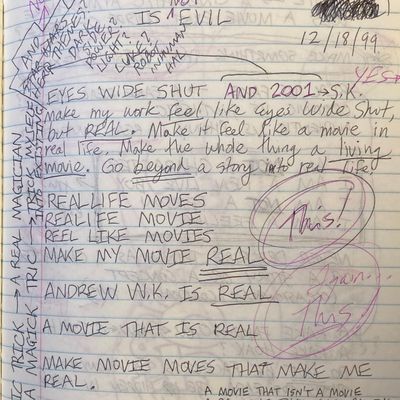 NOT
IS EVIL
12/18/99
YES
EYES WIDE SHUT AND 2001 → S.K.
Make my work feel like Eyes Wide Shut,
but REAL. Make it feel like a movie in
real life. Make the whole thing a living
movie. Go beyond a story into real life!
REALLIFE MOVES
REALLIFE MOVIE
REEL LIKE MOVIES
MAKE MY MOVIE REAL
This!
ANDREW W.K. IS REAL
Again.
This.
A MOVIE THAT IS REAL
MAKE MOVIE MOVES THAT MAKE ME
REAL.
A MOVIE THAT ISN'T A MOVIE
TRICK → A REAL MAGICIAN
A MAGICK TRIC
AND
STAR WARS?
DARK
SIDE?
POWER?
LIGHT?
LUKE?
ROBOT
INHUMAN
HAL